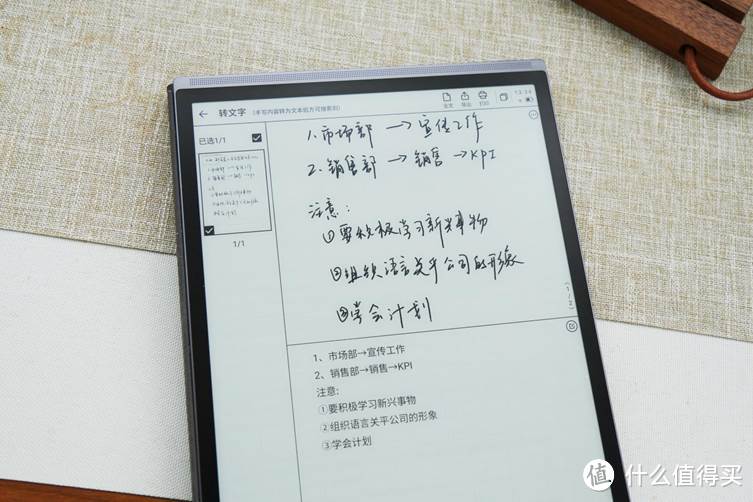 ← 转文字 (手写内容转为文本后方可搜索到)
全文 导出 打印 13:34
已选1/1
1/1
1、市场部→宣传工作
2、销售部→销售→KPI
注意:
①要积极学习新兴事物
②组织语言关乎公司的形象
③学会计划
(1/2)
1、市场部→宣传工作
2、销售部→销售→KPI
注意:
①要积极学习新兴事物
②组织语言关平公司的形象
③学会计划
值 什么值得买